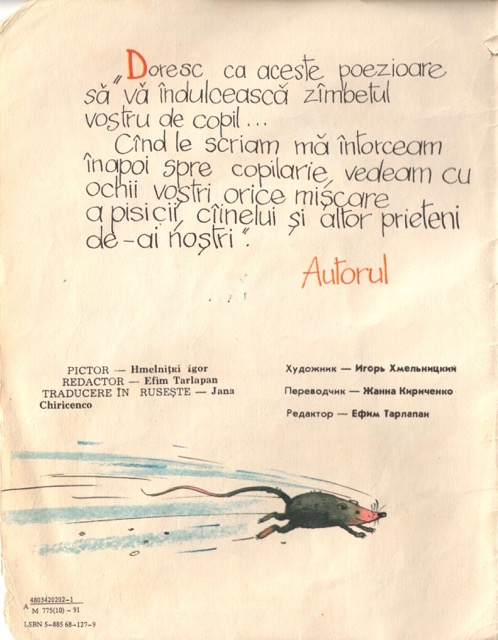 „Doresc ca aceste poezioare
să vă îndulcească zîmbetul
vostru de copil...
Cînd le scriam mă întorceam
înapoi spre copilarie, vedeam cu
ochii voștri orice mișcare
a pisicii, cîinelui și altor prieteni
de-ai noștri".
Autorul
PICTOR — Hmelnițki igor
REDACTOR — Efim Tarlapan
TRADUCERE ÎN RUSEȘTE — Jana
Chiricenco
Художник — Игорь Хмельницкий
Переводчик — Жанна Кириченко
Редактор — Ефим Тарлапан
А 4803420202-1
М 775(10) - 91
LSBN 5-885 68-127-9